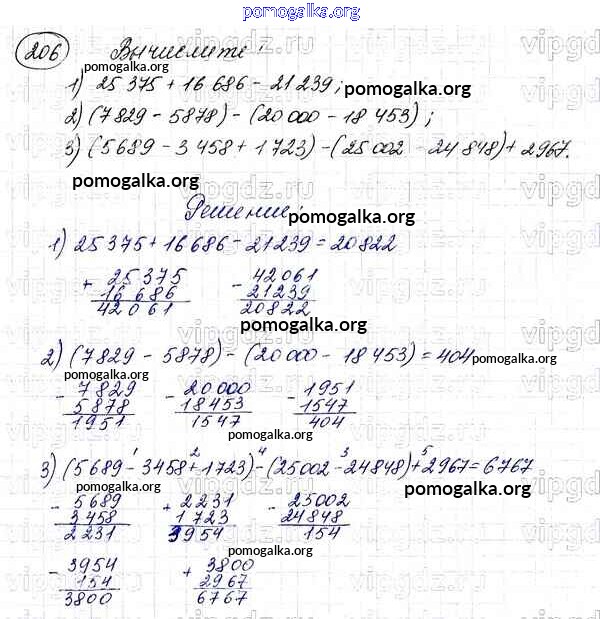 pomogalka.org
206 Вычислите:
pomogalka.org
1) 25 375 + 16 686 - 21 239;
pomogalka.org
2) (7829 - 5878) - (20 000 - 18 453);
3) (5689 - 3 458 + 1 723) - (25 002 - 24 848) + 2967.
pomogalka.org
Решение:
pomogalka.org
1) 25 375 + 16 686 - 21 239 = 20 822
+ 25 375 - 42 061
16 686 21239
42 061 20822
pomogalka.org
2) (7829 - 5878) - (20 000 - 18 453) = 404
pomogalka.org
pomogalka.org
- 7829 - 20 000 - 1951
5878 18453 1547
1951 1547 404
pomogalka.org
1 2 4 3 5
3) (5689 - 3458 + 1723) - (25002 - 24848) + 2967 = 6767
pomogalka.org
pomogalka.org
- 5689 + 2231 - 25002
3458 1723 24848
2231 3954 154
pomogalka.org
- 3954 + 3800
154 2967
3800 6767
pomogalka.org